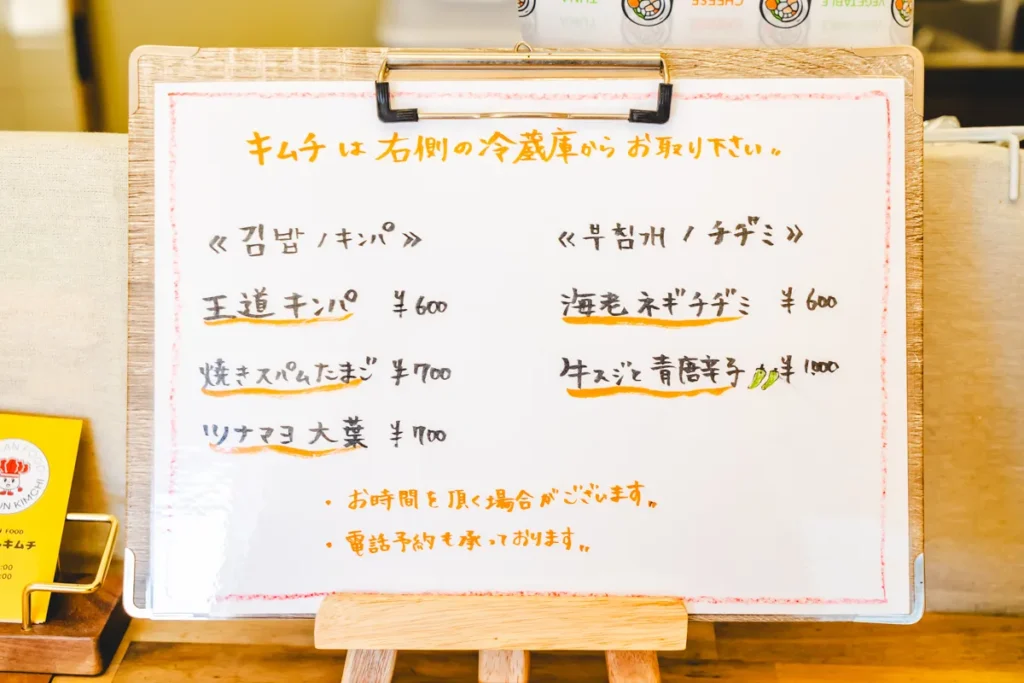 VEGETABLE
CHEESE
TUNA
キムチは右側の冷蔵庫からお取り下さい〃
≪김밥/キンパ≫
王道キンパ ¥600
焼きスパムたまご ¥700
ツナマヨ大葉 ¥700
≪부침개/チヂミ≫
海老ネギチヂミ ¥600
牛スジと青唐辛子 ¥1,000
・お時間を頂く場合がございます〃
・電話予約も承っております〃
AN FOOD
UN KIMCHI
FOOD
キムチ
:00
:00